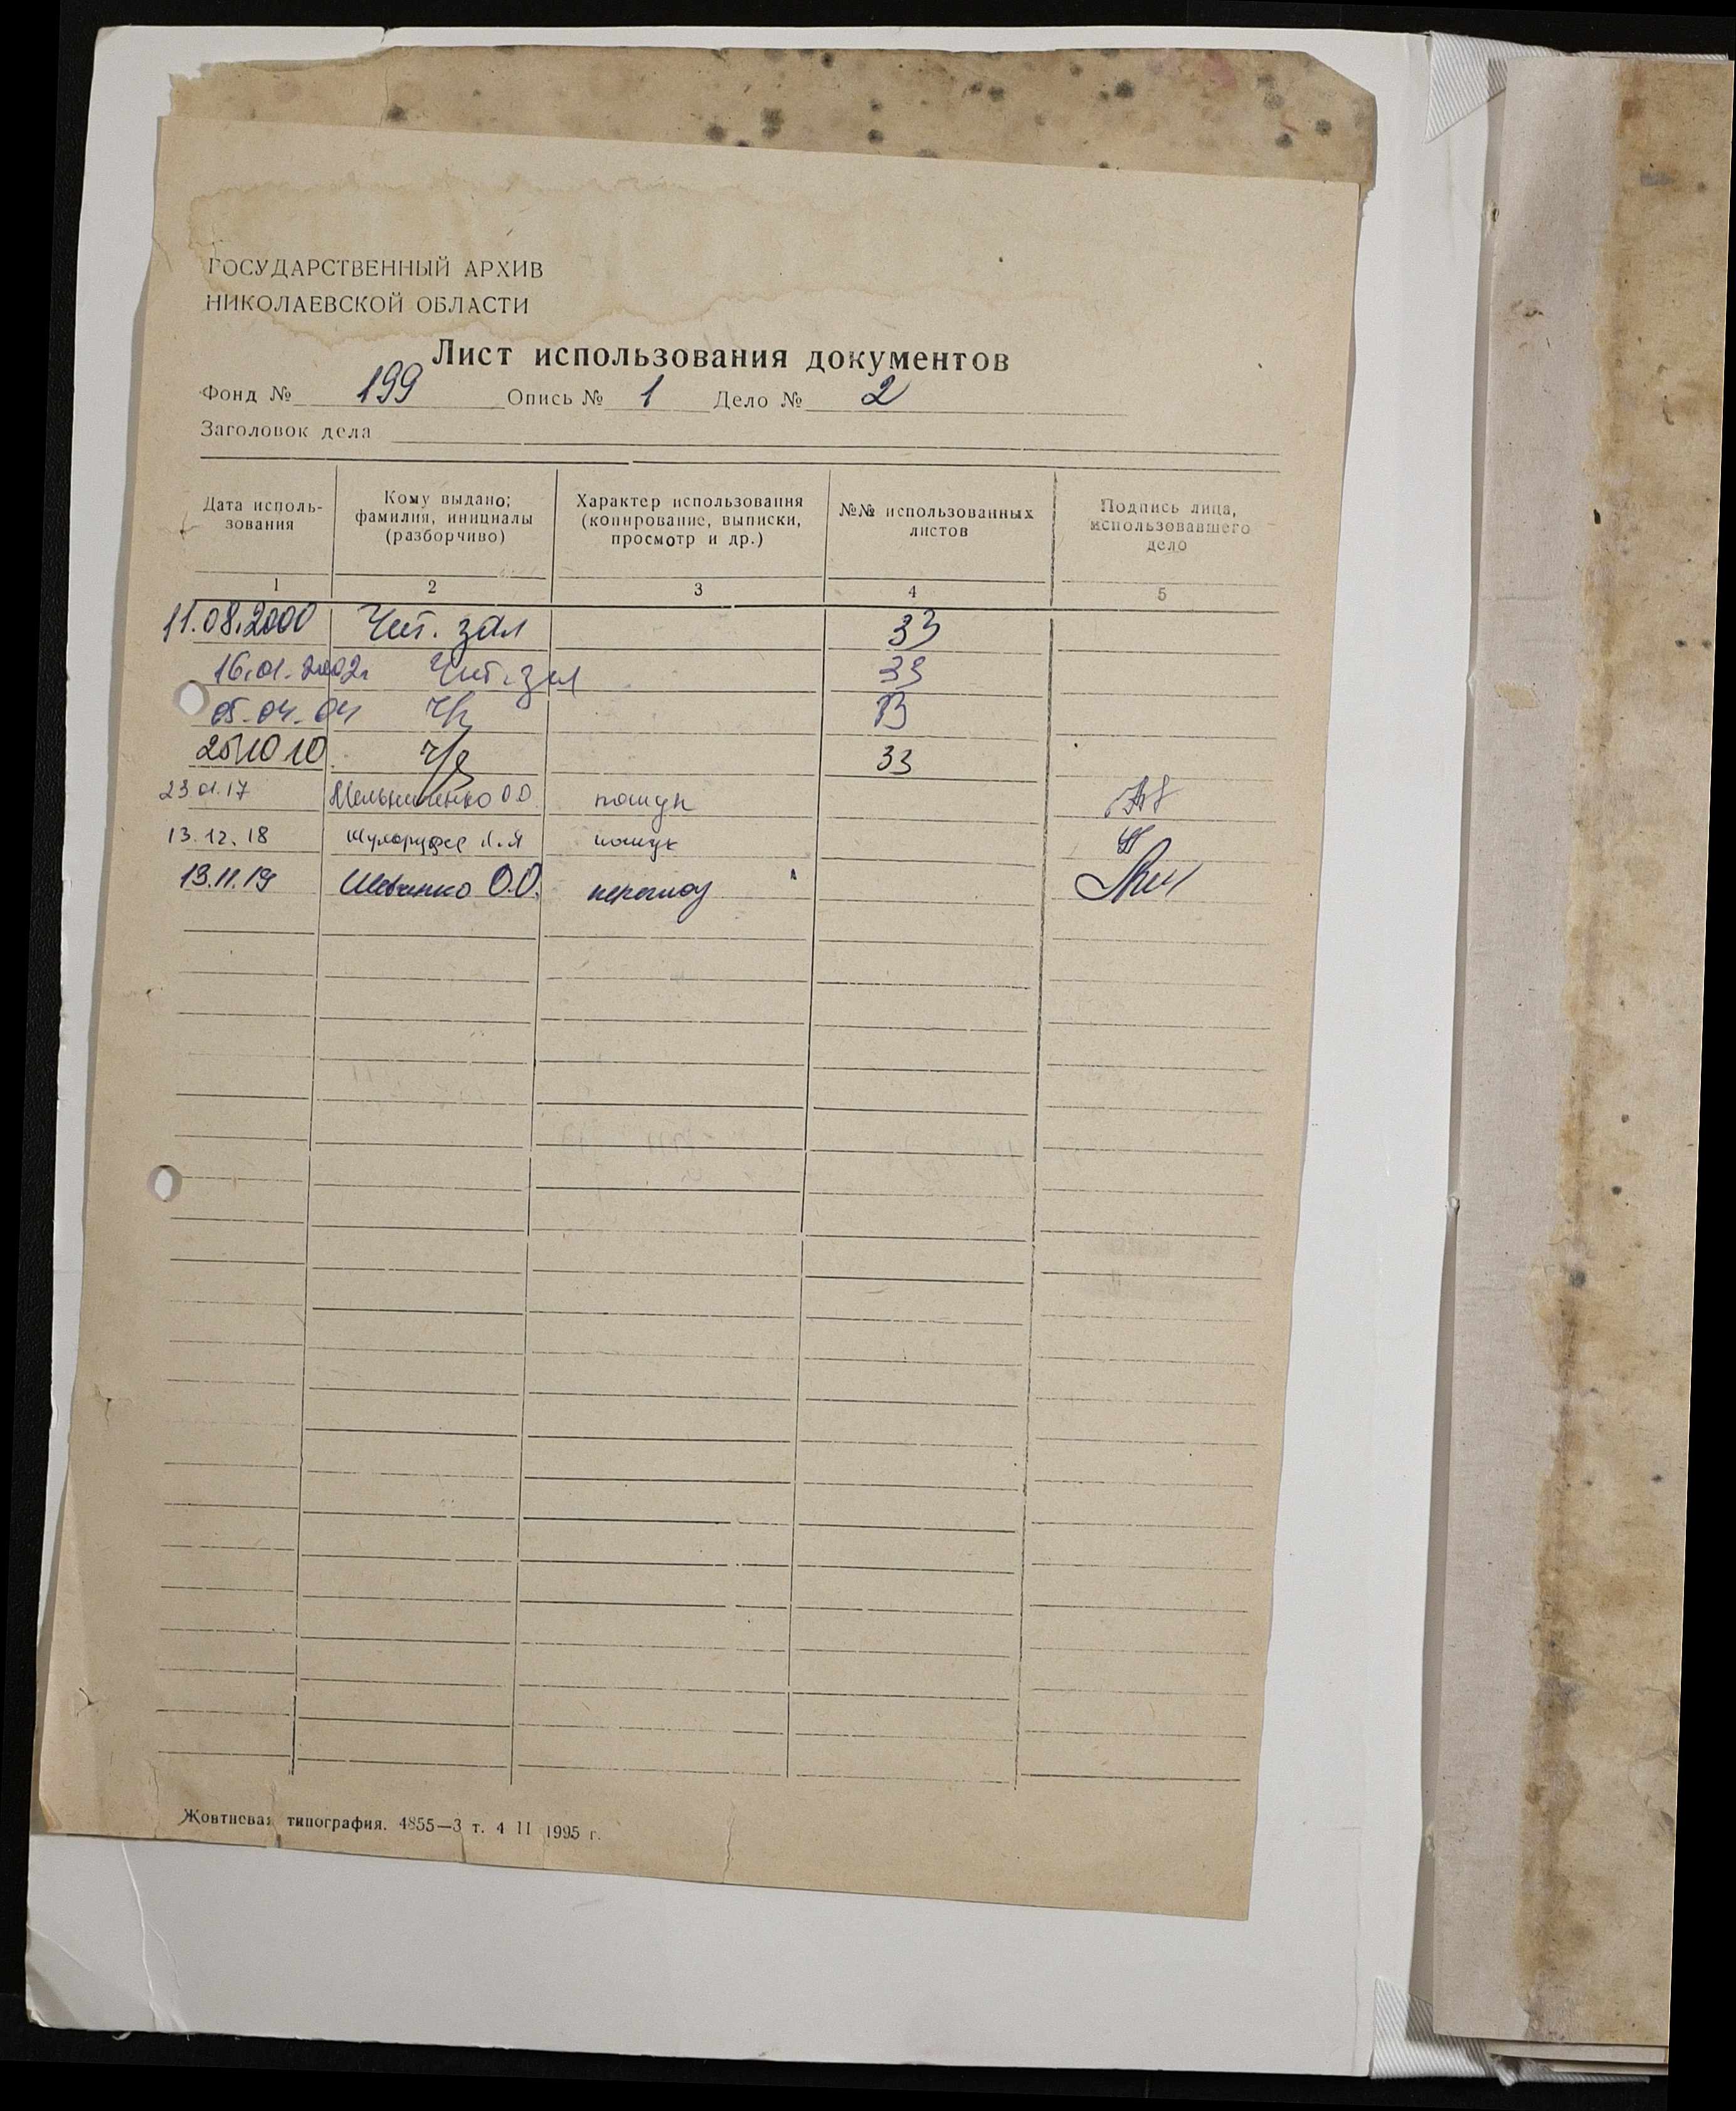 ГОСУДАРСТВЕННЫЙ АРХИВ
НИКОЛАЕВСКОЙ ОБЛАСТИ
Лист использования документов
Фонд № 199 Опись № 1 Дело № 2
Заголовок дела
Дата исполь-
зования
Кому выдано;
фамилия, инициалы
(разборчиво)
Характер использования
(копирование, выписки,
просмотр и др.)
№№ использованных
листов
Подпись лица,
использовавшего
дело
1 2 3 4 5
11.08.2000 Чит. зал 33
16.01.2002г Чит. зал 33
05.04.04
25 10 10 33
23.01.17 О.О. пошук
13.12.18 пошук
13.11.19 О.О. перегляд
Жовтневая типография. 4855—3 т. 4 II 1995 г.